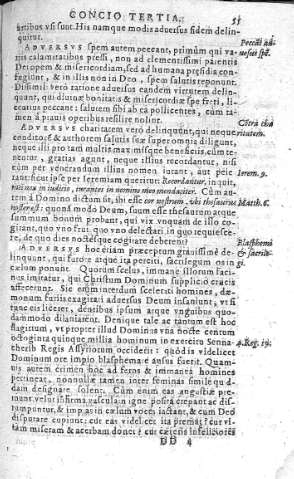 CONCIO TERTIA.
hortibus vsi sunt. His namque modis aduersus fidem delin-
quitur.
ADVERSVS spem autem peccant, primùm qui va-
rijs calamitatibus pressi, non ad clementissimi parentis
Dei opem & misericordiam, sed ad humana præsidia con-
fugiunt, & in illis non in Deo, spem salutis reponunt.
Dissimili verò ratione aduersus eandem virtutem delin-
quunt, qui diuinæ bonitatis & misericordiæ spe freti, li-
centius peccant: salutem sibi ab ea pollicentes, cùm ta-
men à prauis operibus resilire nolint.
ADVERSVS charitatem verò delinquunt, qui neque
conditorē & authorem salutis suæ super omnia diligunt,
neque illi pro tam multis maximisque beneficijs, cùm te-
nentur, gratias agunt, neque illius recordantur, nisi
cùm per venerandum illius nomen iurant, aut peie-
rant: sicut ipse per Ieremiam queritur: Recordantur, inquit,
mei non in iudicio, iurantes in nomine meo mendaciter. Cùm au-
tem à Domino dictum sit, ibi esse cor nostrum, vbi thesaurus
noster est: quond modo Deum, suum esse thesaurum atque
summum bonum probant, qui vix vnquam de illo co-
gitant, quo vno frui, quo vno delectari, in quo requiesce-
re, de quo dies noctesque cogitare deberent?
ADVERSVS hoc etiam præceptum grauissimè de-
linquunt, qui furore atque ira perciti, sacrilegum os in
cælum ponunt. Quorum scelus, immane illorum faci-
nus imitatur, qui Christum Dominum supplicio crucis
affecerunt. Sic enim interdum scelerati homines, dæ-
monum furijs exagitati aduersus Deum insaniunt, vt si
tanc eis liceret, dentibus ipsum atque vnguibus quo-
dammodo dilaniarent. Denique tale ac tantum est hoc
flagitium, vt propter illud Dominus vna nocte centum
octoginta quinque millia hominum in exercitu Senna-
cherib Regis Assyriorum occiderit: quòd is videlicet
Dominum ore impio blasphemare ausus fuerit. Quam-
uis autem crimen hoc ad feros & immanes homines
pertineat, nonnullæ tamen inter feminas simile quid-
dam designare solent. Cùm enim eas angustiæ pre-
munt, velut infirma vascula in igne posita crepant ac dis-
rumpuntur, & impias in cælum voces iactant, & cum Deo
disputare cupiunt: cur eas videlicet ita premat? cur vi-
tam miseram & acerbam donet? cur cæteris infeliciores
DD 4
Peccati ad-
uersus spē.
Cōtra cha
ritatem.
Ierem. 9.
Matth. 6.
Blasphemi
& sacrile-
gi.
4. Reg. 19.